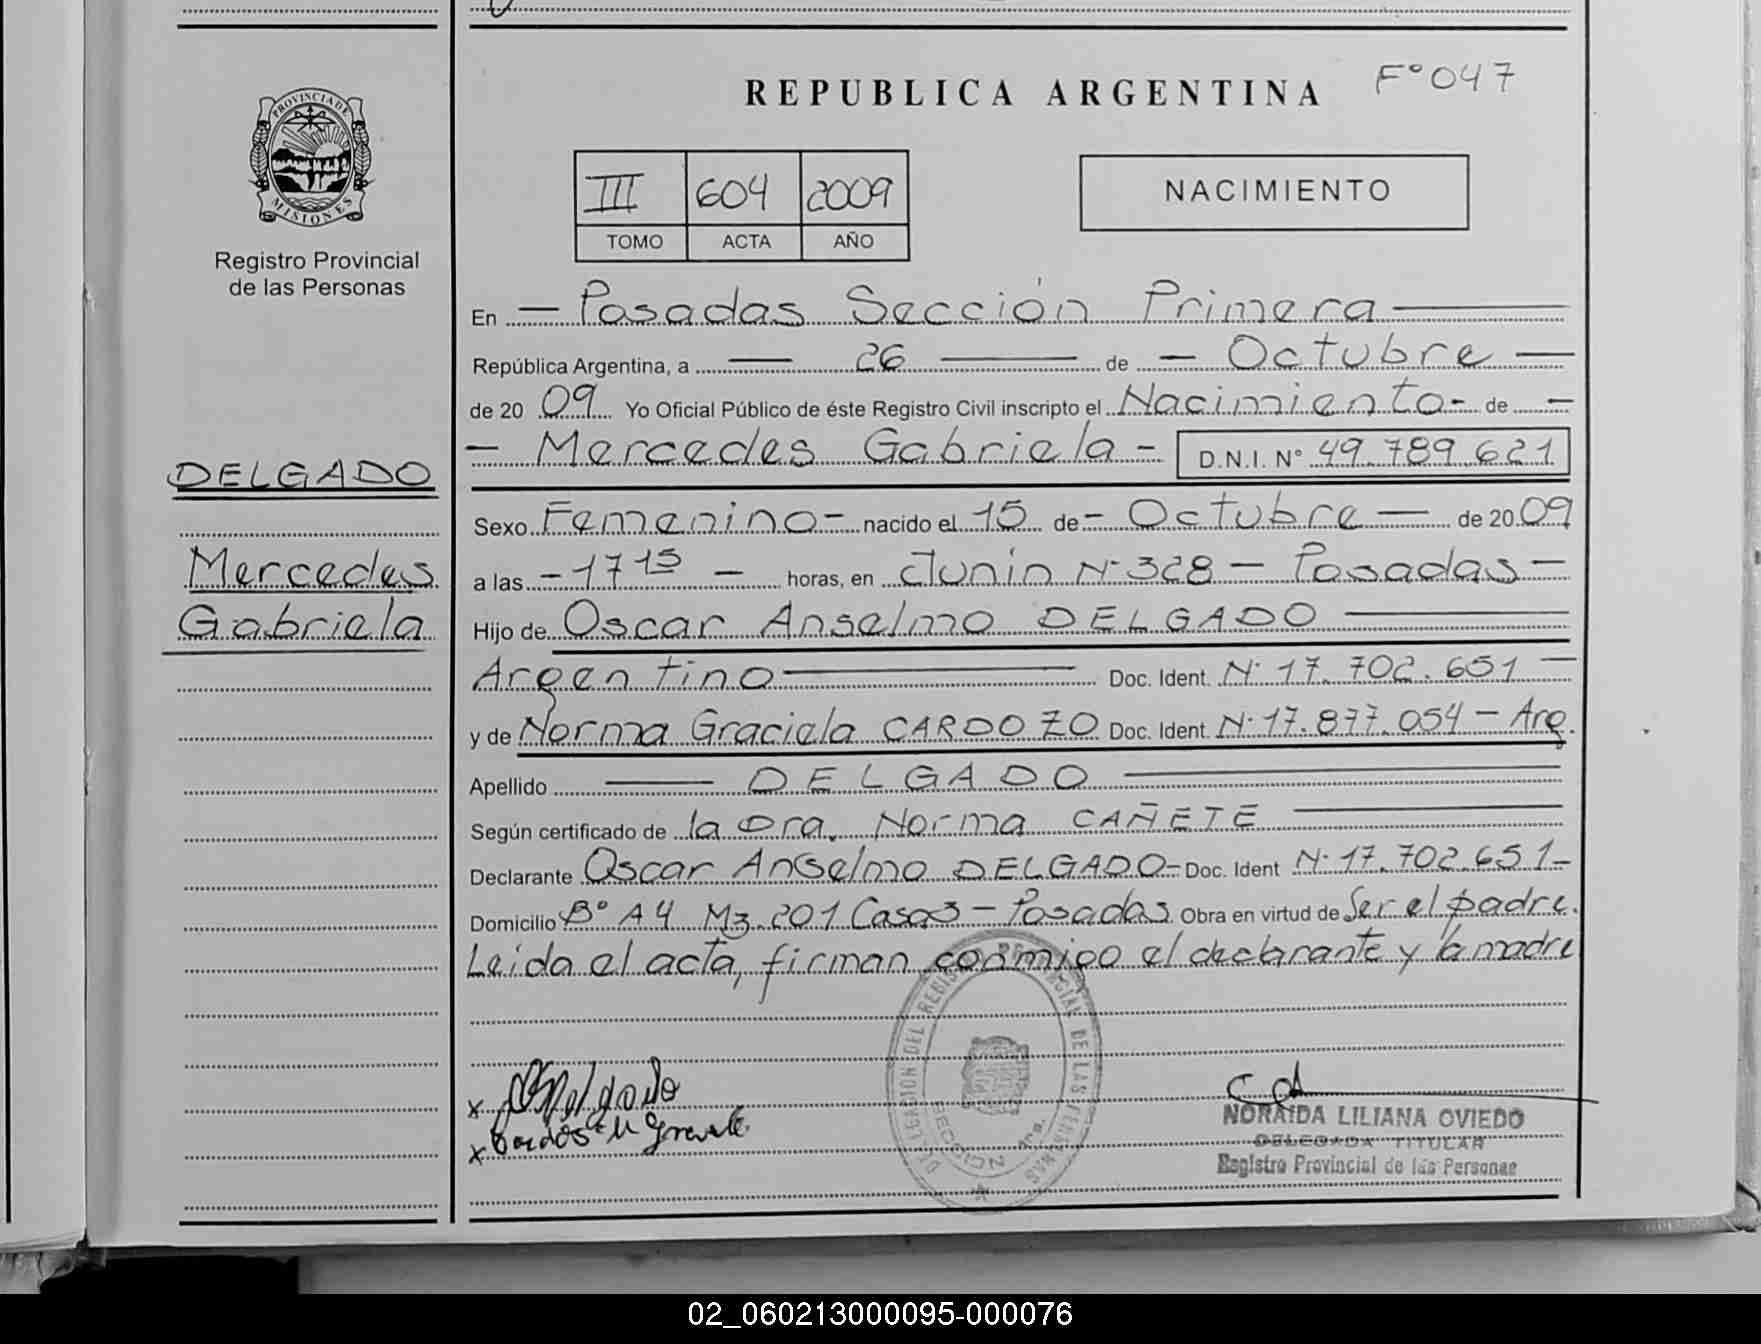 REPUBLICA ARGENTINA
Fº 047
PROVINCIA DE
MISIONES
Registro Provincial
de las Personas
III 604 2009
TOMO ACTA AÑO
NACIMIENTO
DELGADO
Mercedes
Gabriela
En — Posadas Sección Primera —
República Argentina, a — 26 — de — Octubre —
de 20 09 Yo Oficial Público de éste Registro Civil inscripto el Nacimiento - de —
— Mercedes Gabriela - D.N.I. N° 49.789.621
Sexo Femenino - nacido el 15 de - Octubre — de 20 09
a las - 17 15 - horas, en Junín Nº 328 - Posadas -
Hijo de Oscar Anselmo DELGADO —
Argentino — Doc. Ident. Nº 17.702.651 —
y de Norma Graciela CARDOZO Doc. Ident. Nº 17.877.054 - Arg.
Apellido — DELGADO —
Según certificado de la Dra. Norma CAÑETE —
Declarante Oscar Anselmo DELGADO - Doc. Ident Nº 17.702.651 -
Domicilio Bº A4 Mz. 201 Casa 3 - Posadas Obra en virtud de Ser el padre.
Leída el acta, firman conmigo el declarante y la madre
DELEGACION DEL REGISTRO PROVINCIAL DE LAS PERSONAS
SECCION 1ra.
x Delgado
x
NORAIDA LILIANA OVIEDO
DELEGADA TITULAR
Registro Provincial de las Personas
02_060213000095-000076